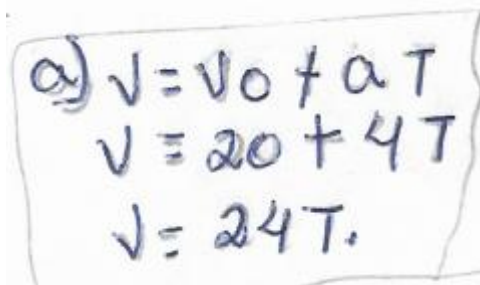 a) V = V0 + a T
V = 20 + 4 T
V = 24 T.